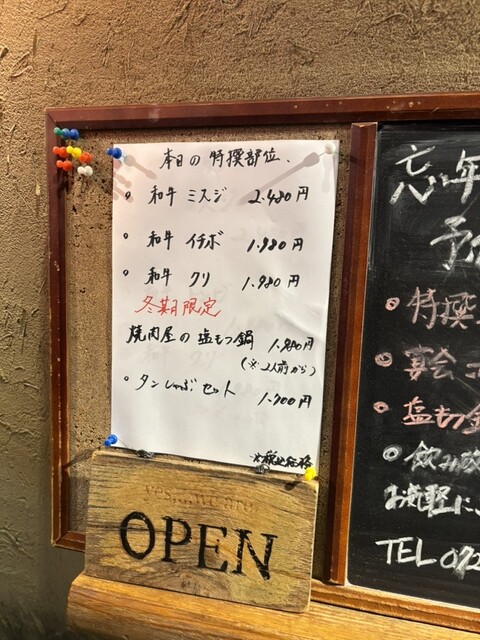 本日の特撰部位.
。和牛 ミスジ 2.480円
。和牛 イチボ 1.980円
。和牛 クリ 1.980円
冬期限定
焼肉屋の塩もつ鍋 1.980円
(※2人前から)
。タンしゃぶセット 1.700円
※税込価格
yes, we are
OPEN
忘年
予
◎特撰
◎宴会コ
◎塩もつ鍋
◎飲み放
お気軽に、
TEL 072